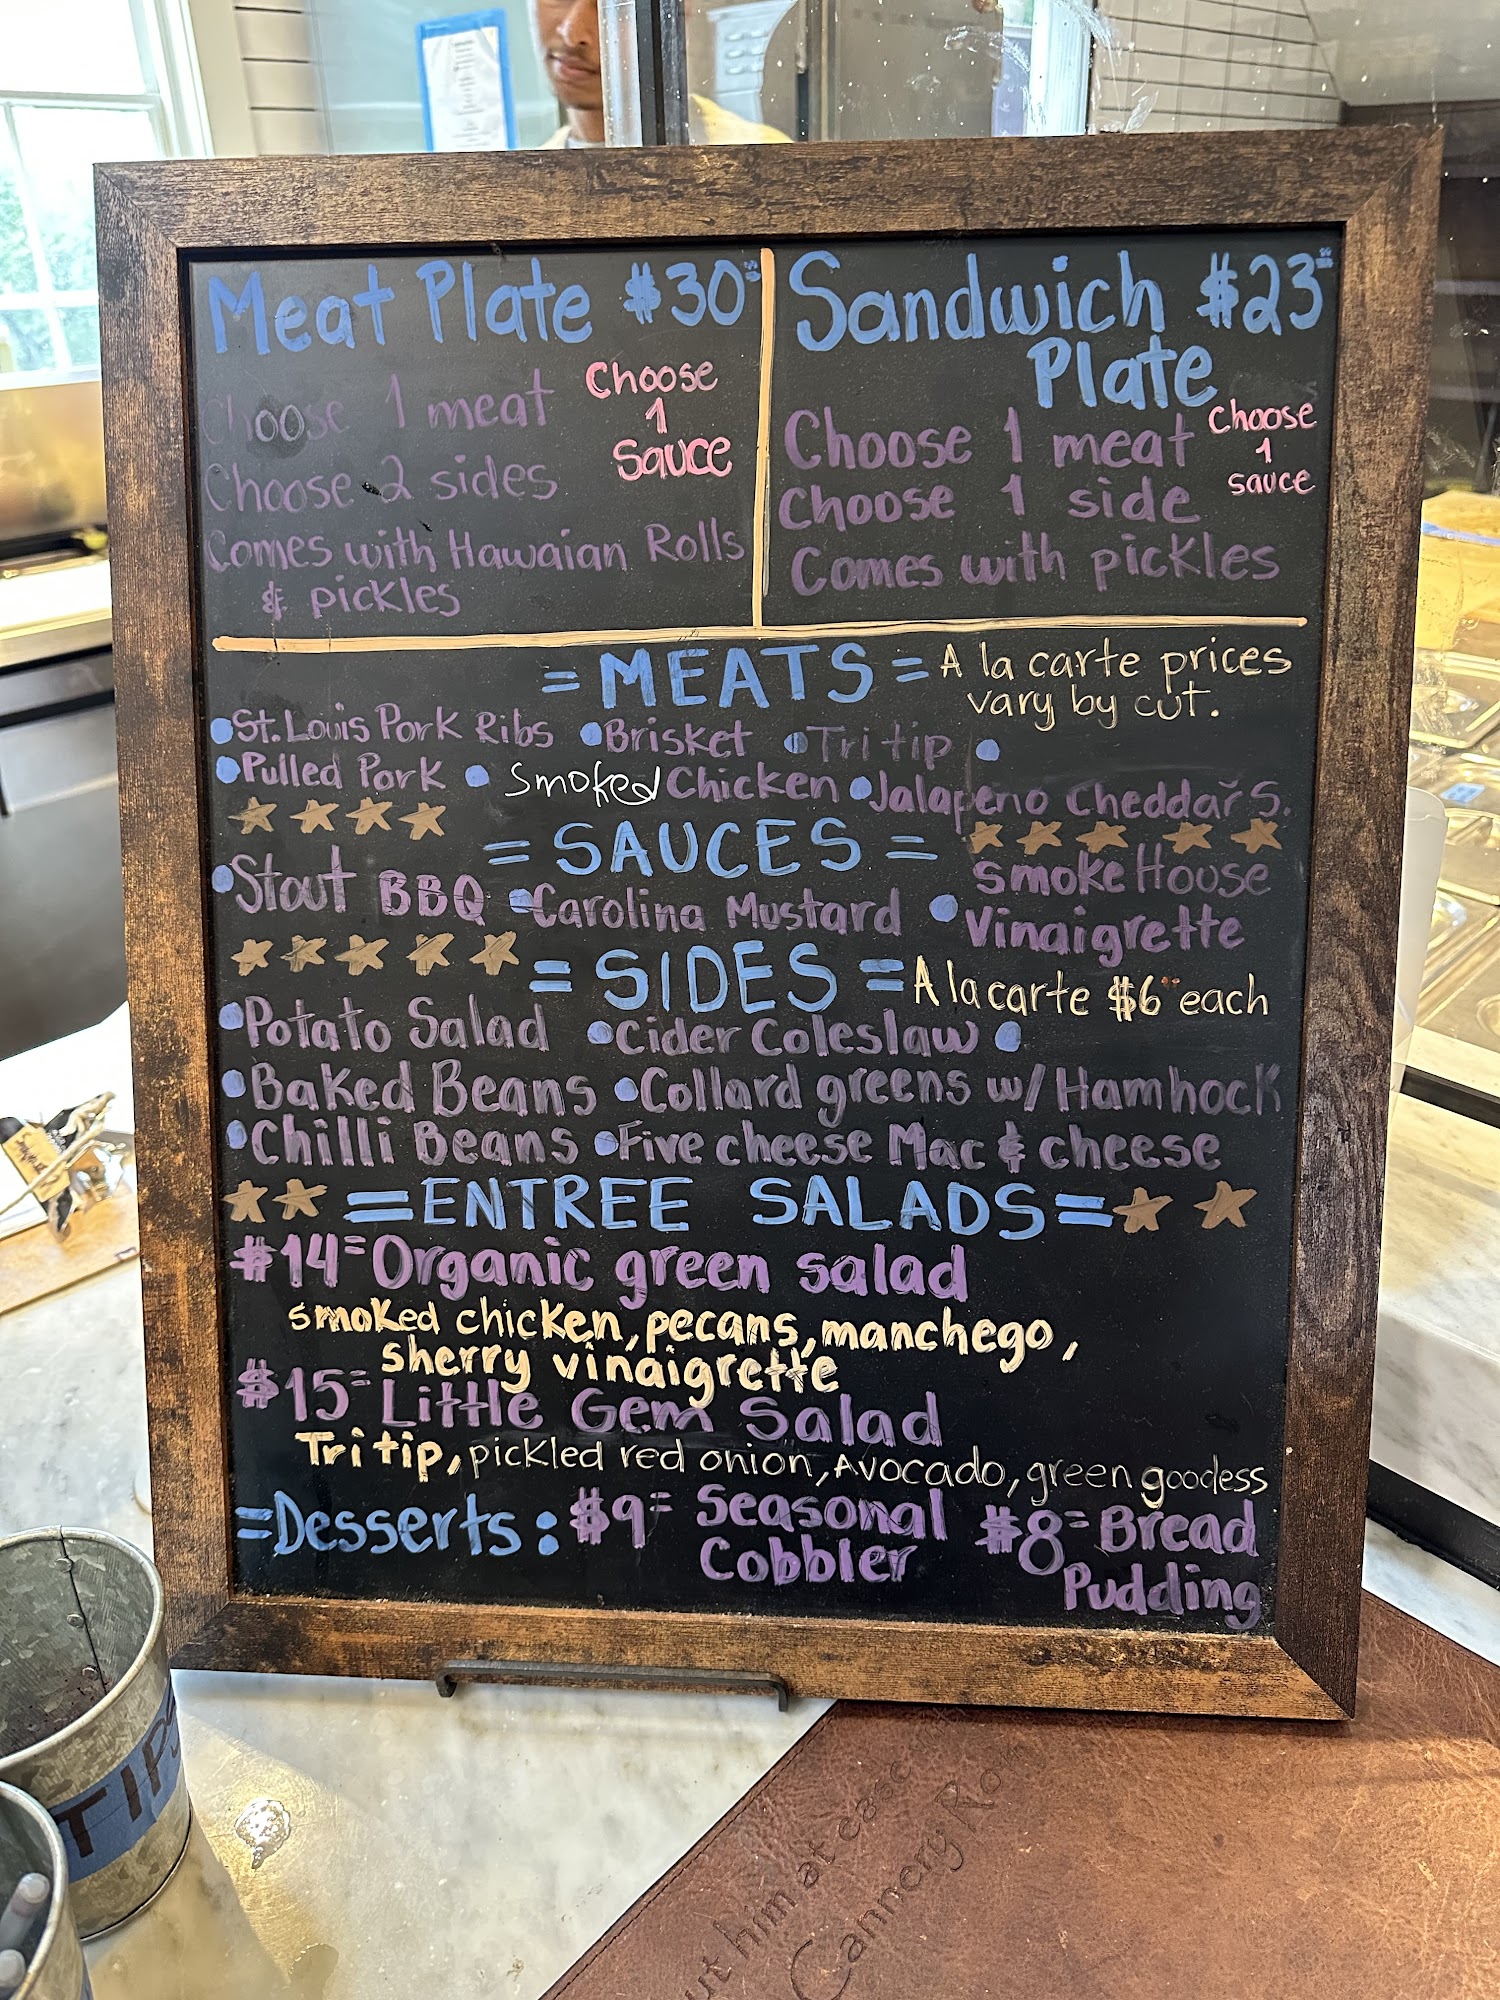 Meat Plate $30
Choose 1 meat
Choose 2 sides
Comes with Hawaiian Rolls
& pickles
Choose
1
Sauce
Sandwich $23
Plate
Choose 1 meat
Choose 1 side
Comes with pickles
Choose
1
sauce
= MEATS = A la carte prices
vary by cut.
•St. Louis Pork Ribs •Brisket •Tri tip •
•Pulled Pork • Smoked Chicken •Jalapeno Cheddar S.
= SAUCES =
•Stout BBQ •Carolina Mustard •Smoke House
Vinaigrette
= SIDES = A la carte $6 each
•Potato Salad •Cider Coleslaw •
•Baked Beans •Collard greens w/ Hamhock
•Chilli Beans •Five cheese Mac & cheese
=ENTREE SALADS=
$14= Organic green salad
smoked chicken, pecans, manchego,
sherry vinaigrette
$15= Little Gem Salad
Tri tip, pickled red onion, Avocado, green goodess
=Desserts: $9= Seasonal
Cobbler
$8= Bread
Pudding
TIPS
him at ease
Cannery Ro